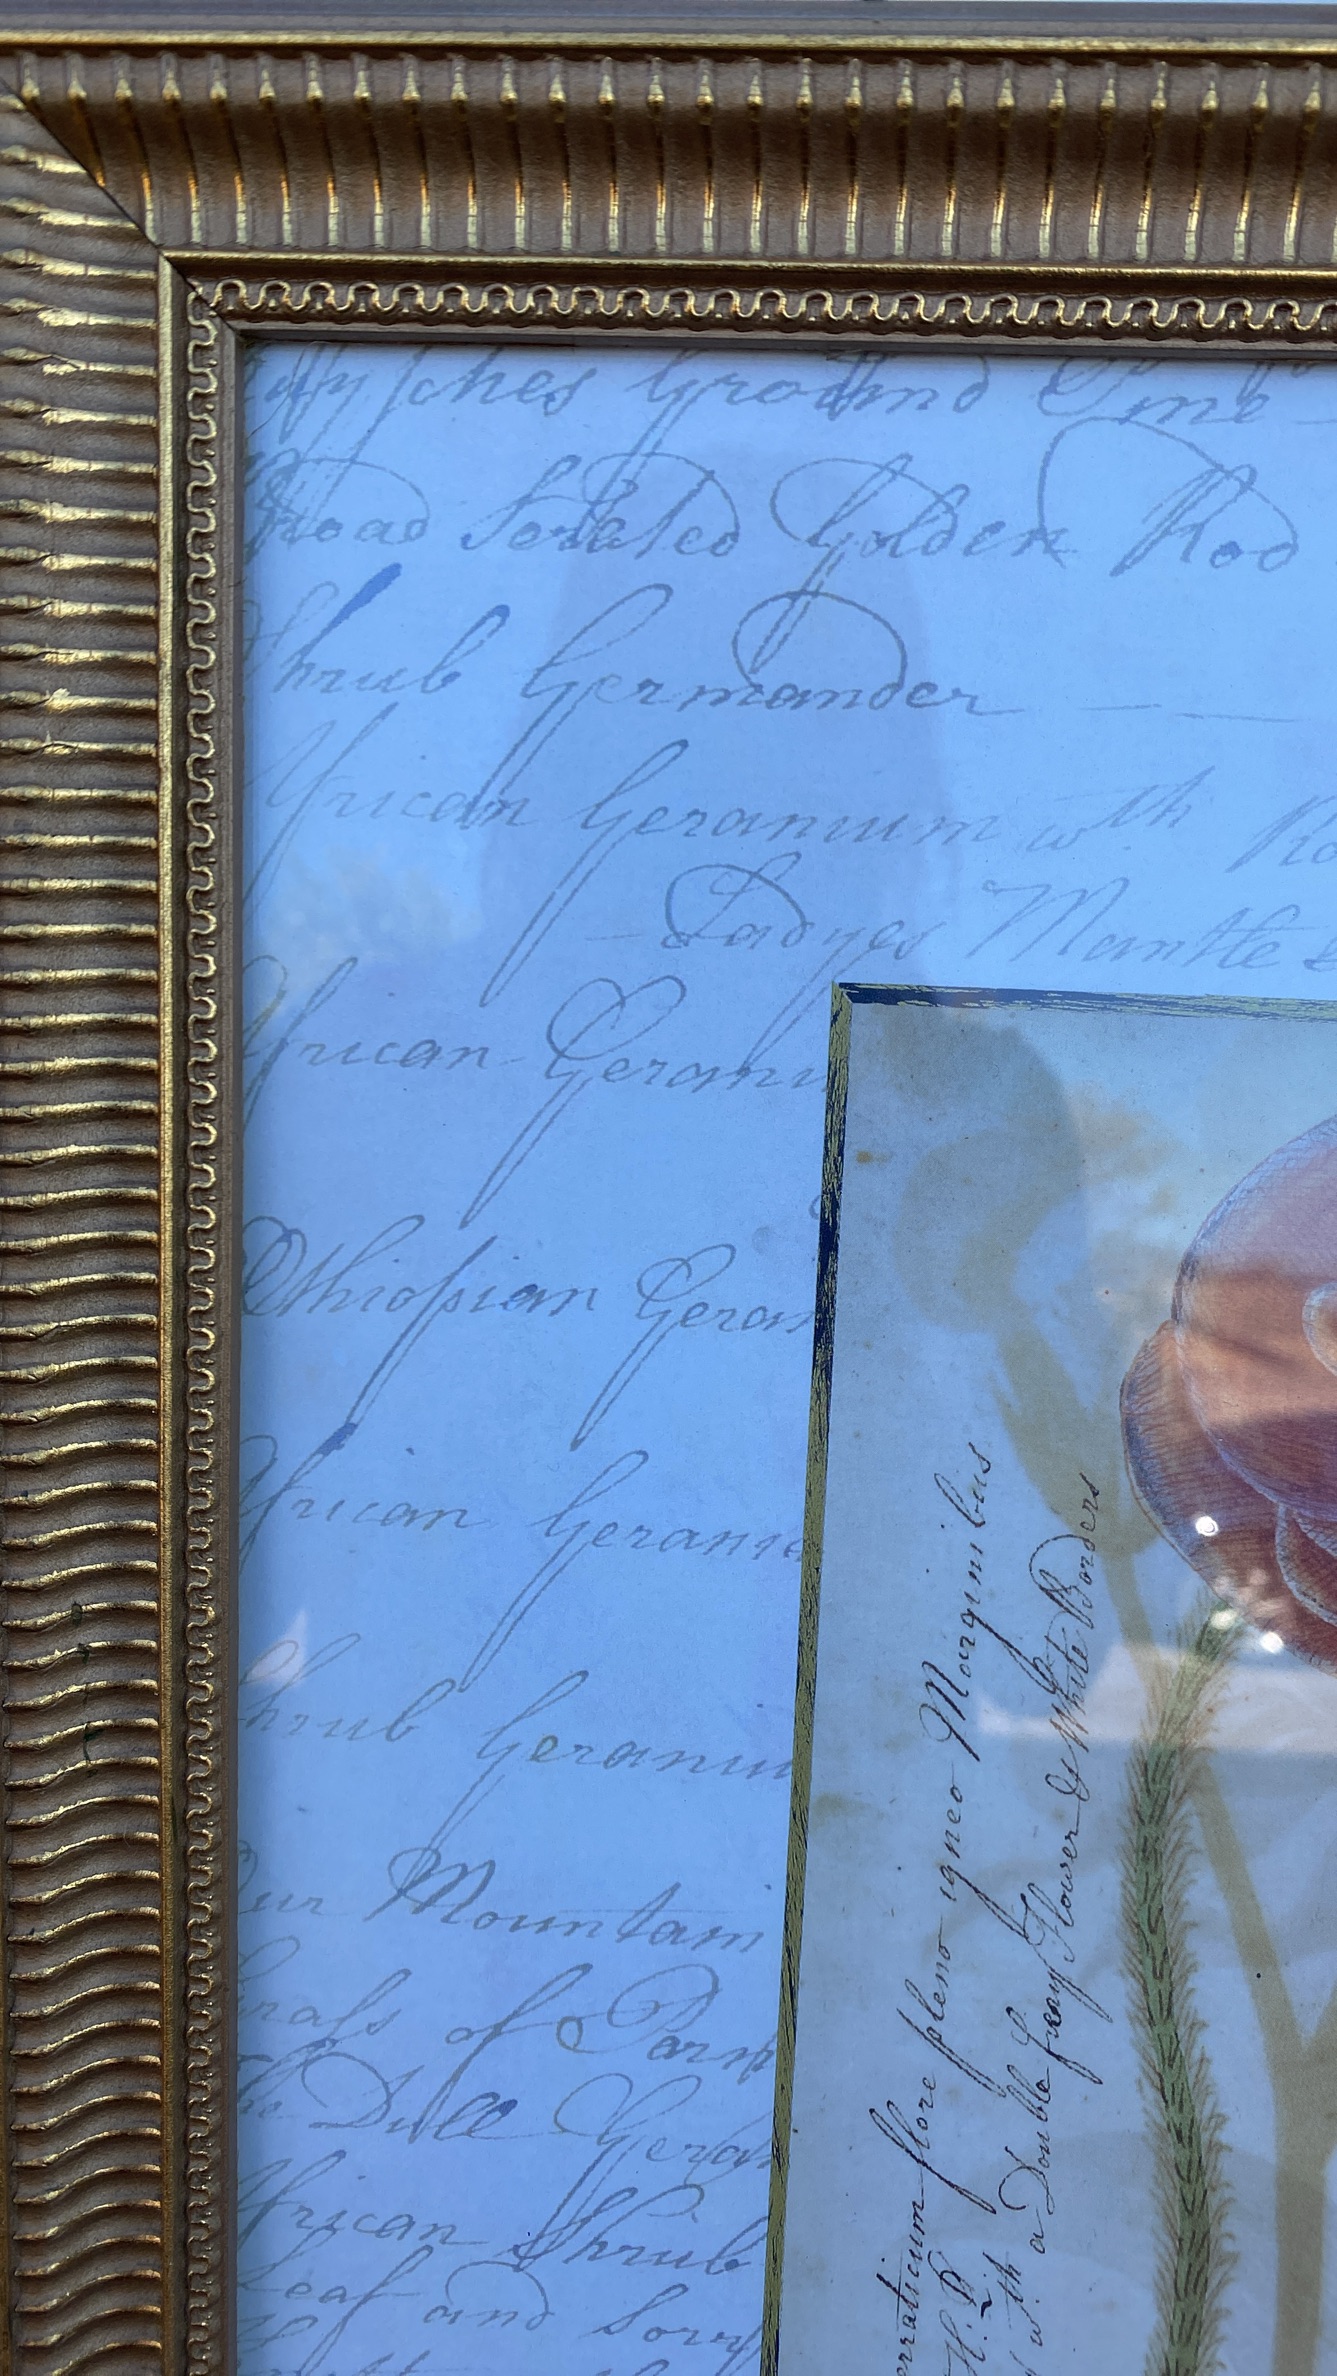 Ground Pine
Broad Serated Golden Rod
Shrub Germander
African Geranium wth
Ladyes Mantle
African Gerani
Ethiopian Geran
African Gerani
Shrub Geraniu
Mountain
of Parn
The Dull Geran
African Shrub
Leaf and Sorr
erraticum flore pleno igneo Marginibus
H. R.
wth a Double firey Flower & White Borders